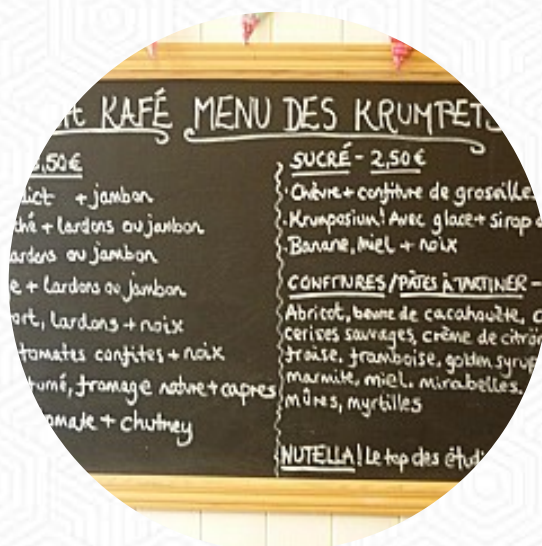 KAFÉ MENU DES KRUMPETS
,50€
+ jambon
+ lardons ou jambon
ou jambon
+ lardons ou jambon
, lardons + noix
tomates confites + noix
fromage nature + capres
+ chutney
SUCRÉ - 2,50€
· Chèvre + confiture de groseille
· Krumposium! Avec glace + sirop
· Banane, miel + noix
CONFITURES / PÂTES À TARTINER -
Abricot, beurre de cacahouète,
cerises sauvages, crème de citron
fraise, framboise, golden syrup
marmite, miel, mirabelles,
mûres, myrtilles
NUTELLA! Le top des